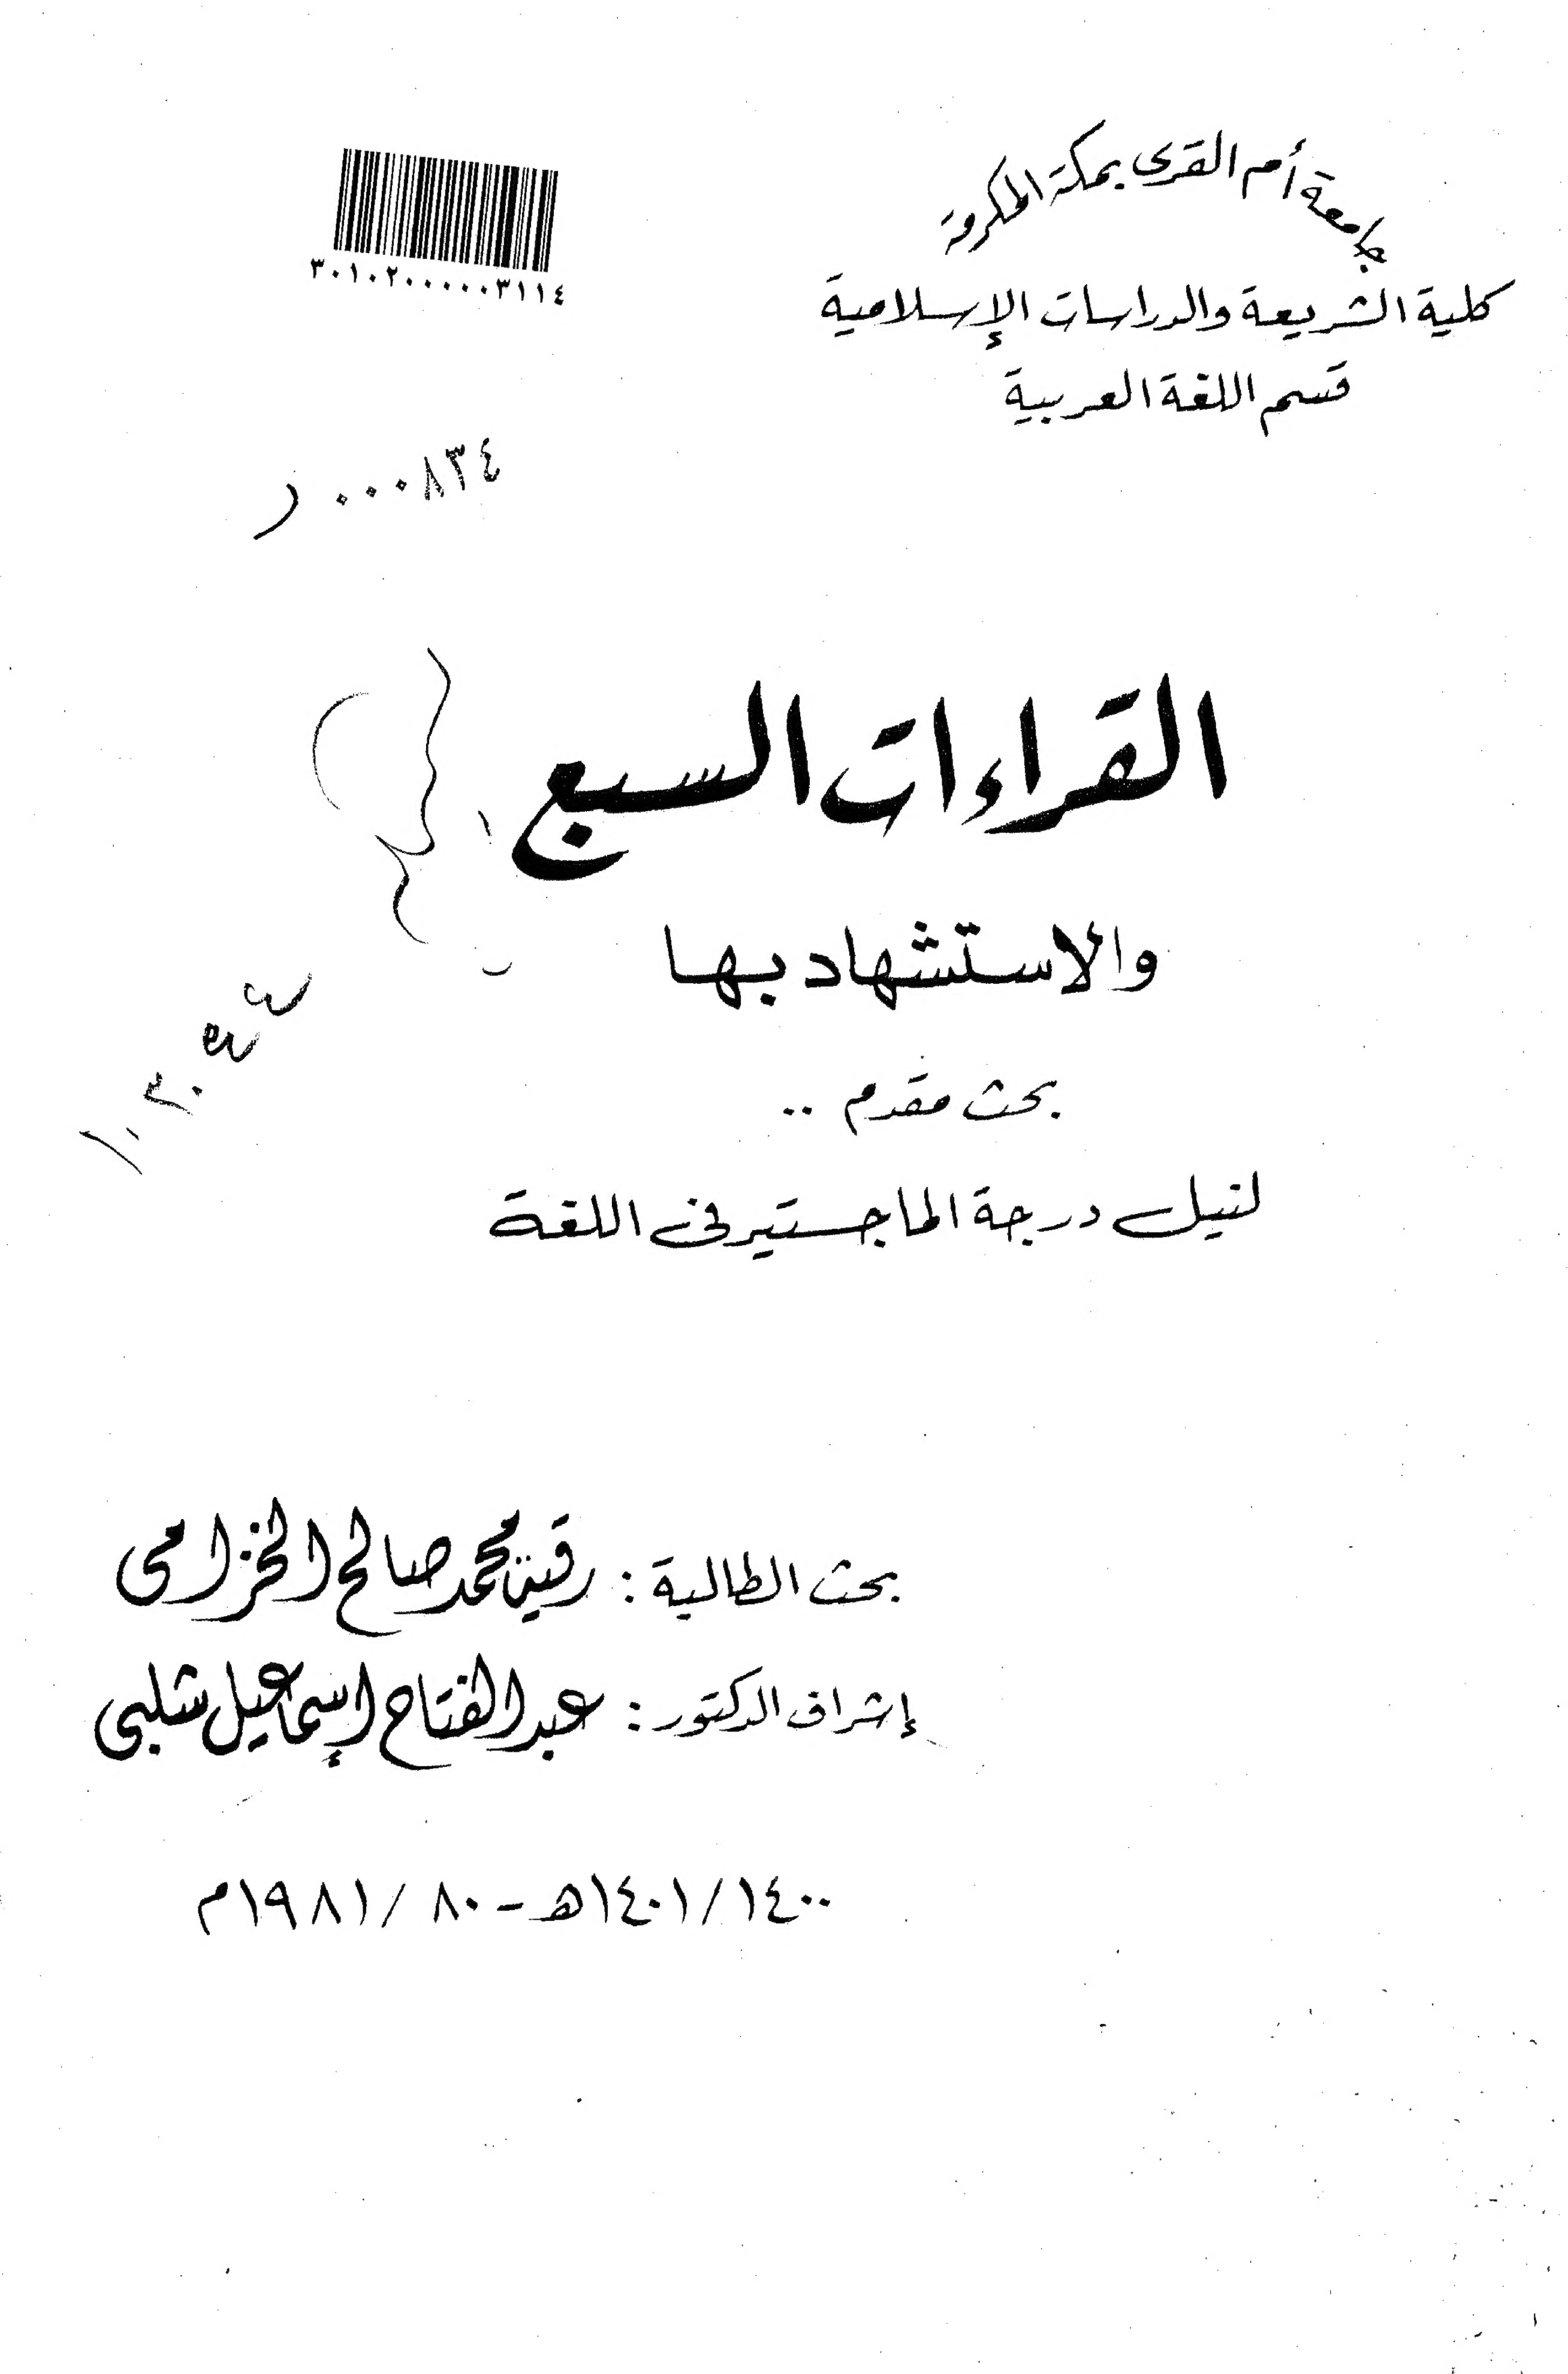 جامعة أم القرى بمكة المكرمة
كلية الشريعة والدراسات الإسلامية
قسم اللغة العربية
٣٠١٠٢٠٠٠٠٠٣١١٤
٠٠٠٨٣٤ ر
القراءات السبع
والاستشهاد بها
بحث مقدم ..
لنيل درجة الماجستير فى اللغة
بحث الطالبة : رقية محمد صالح الخزامى
إشراف الدكتور : عبد الفتاح إسماعيل شلبى
١٤٠٠/١٤٠١هـ - ٨٠/١٩٨١م